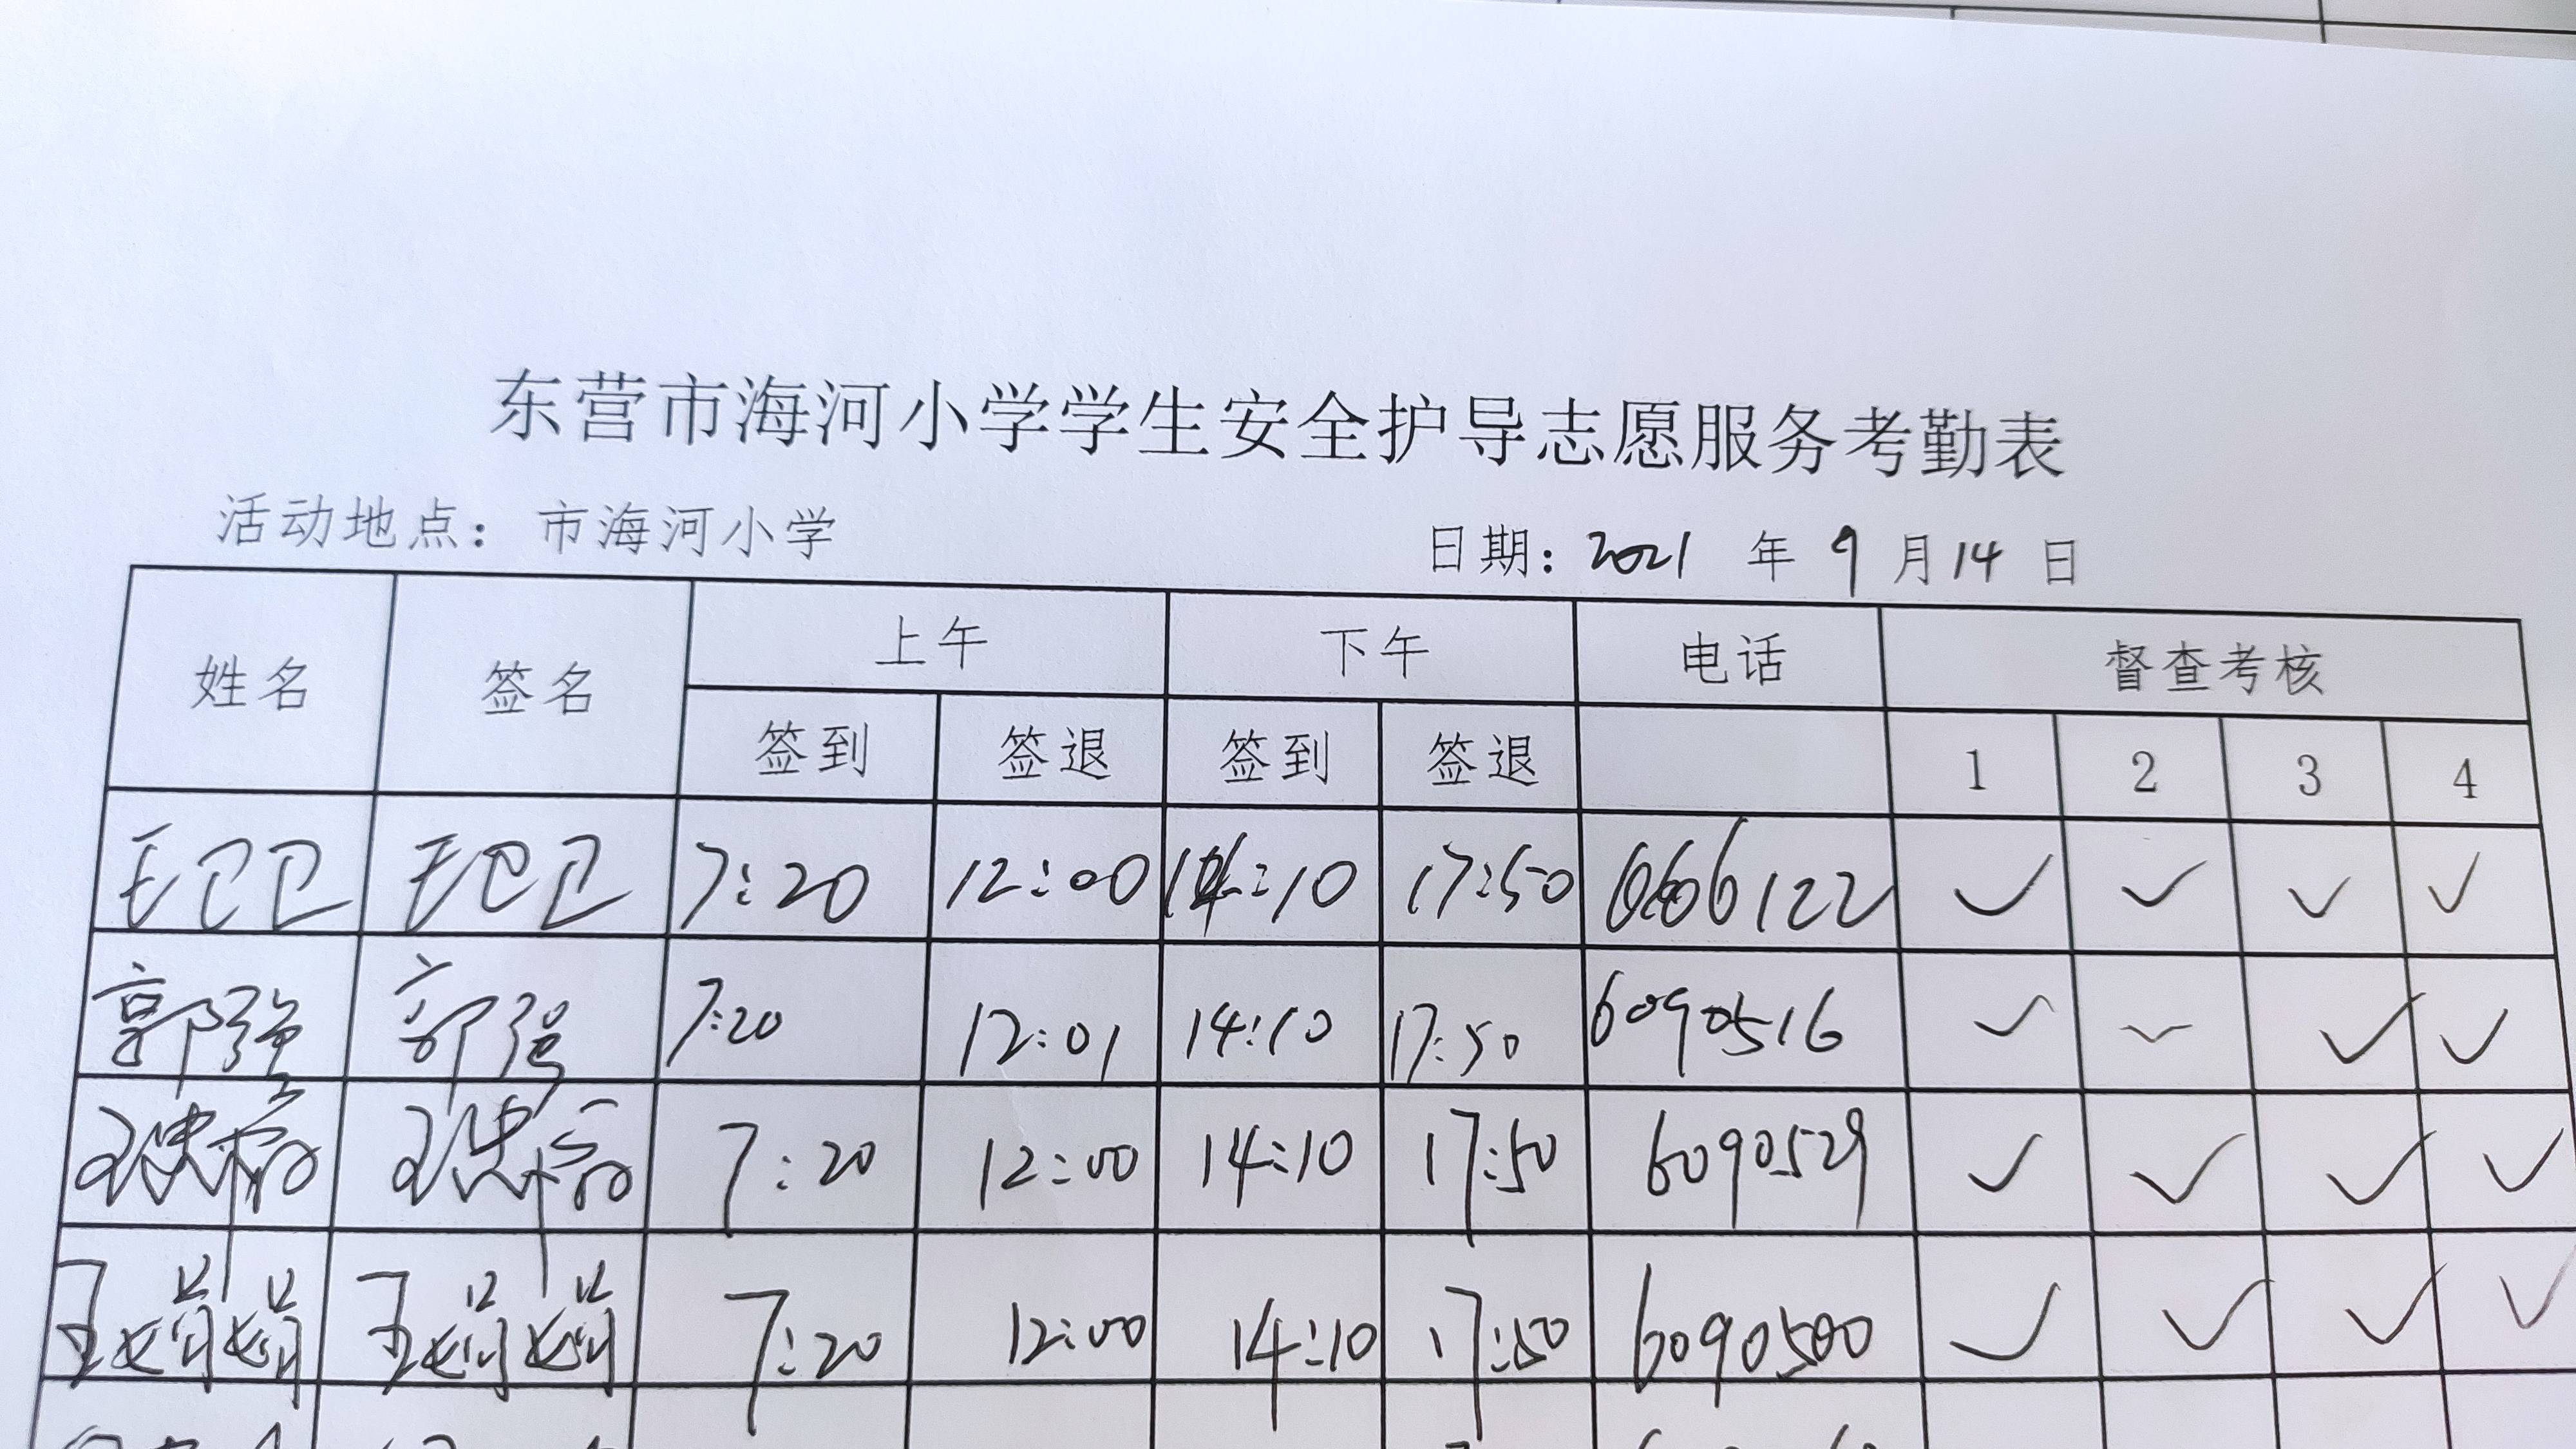 东营市海河小学学生安全护导志愿服务考勤表
活动地点：市海河小学 日期：2021 年 9 月 14 日
姓名 签名 上午 下午 电话 督查考核
签到 签退 签到 签退 1 2 3 4
7:20 12:00 14:10 17:50 6066122 ✓ ✓ ✓ ✓
郭强 郭强 7:20 12:01 14:10 17:50 6090516 ✓ ✓ ✓ ✓
7:20 12:00 14:10 17:50 6090529 ✓ ✓ ✓ ✓
王娟娟 王娟娟 7:20 12:00 14:10 17:50 6090500 ✓ ✓ ✓ ✓